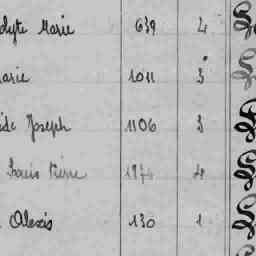 olyte Marie 639 4
Marie 1011 3
ide Joseph 1106 3
Louis Pierre 1974 4
Alexis 130 1